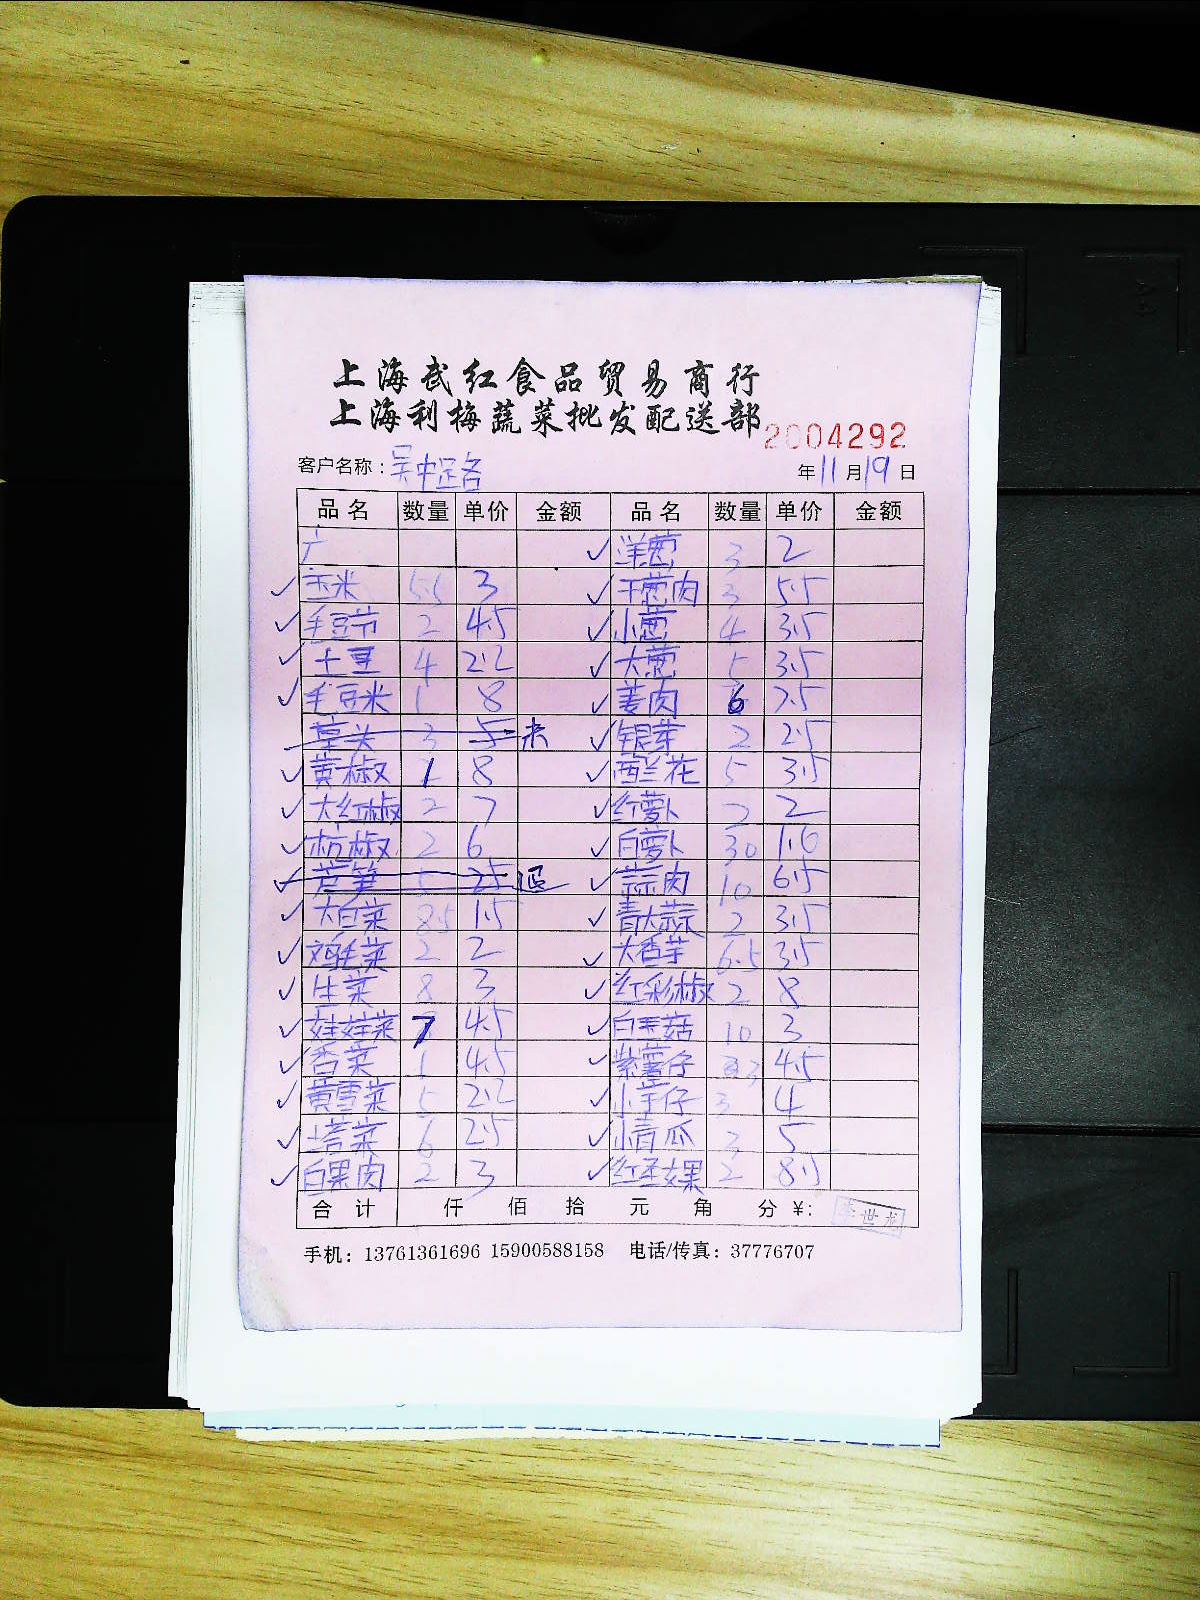 上海武红食品贸易商行
上海利梅蔬菜批发配送部
2004292
客户名称：吴中路 年11月19日
品名 数量 单价 金额 品名 数量 单价 金额
洋葱 3 2
玉米 5.5 3 干葱肉 3 5.5
毛豆节 2 4.5 小葱 4 3.5
土豆 4 2.2 大葱 5 3.5
毛豆米 1 8 姜肉 6 7.5
草头 3 5 未 银芽 2 2.5
黄椒 1 8 西兰花 5 3.5
大红椒 2 7 红萝卜 2 2
杭椒 2 6 白萝卜 30 1.0
芦笋 5 25 退 蒜肉 10 6.5
大白菜 8.5 1.5 青大蒜 2 3.5
鸡毛菜 2 2 大香芋 6.5 3.5
生菜 8 3 红彩椒 2 8
娃娃菜 7 4.5 白玉菇 10 3
香菜 1 4.5 紫薯仔 4.5
黄雪菜 5 2.2 小芋仔 3 4
塔菜 6 2.5 小青瓜 3 5
白果肉 2 3 红圣女果 2 8.5
合计 仟 佰 拾 元 角 分 ¥: 李世龙
手机：13761361696 15900588158 电话/传真：37776707